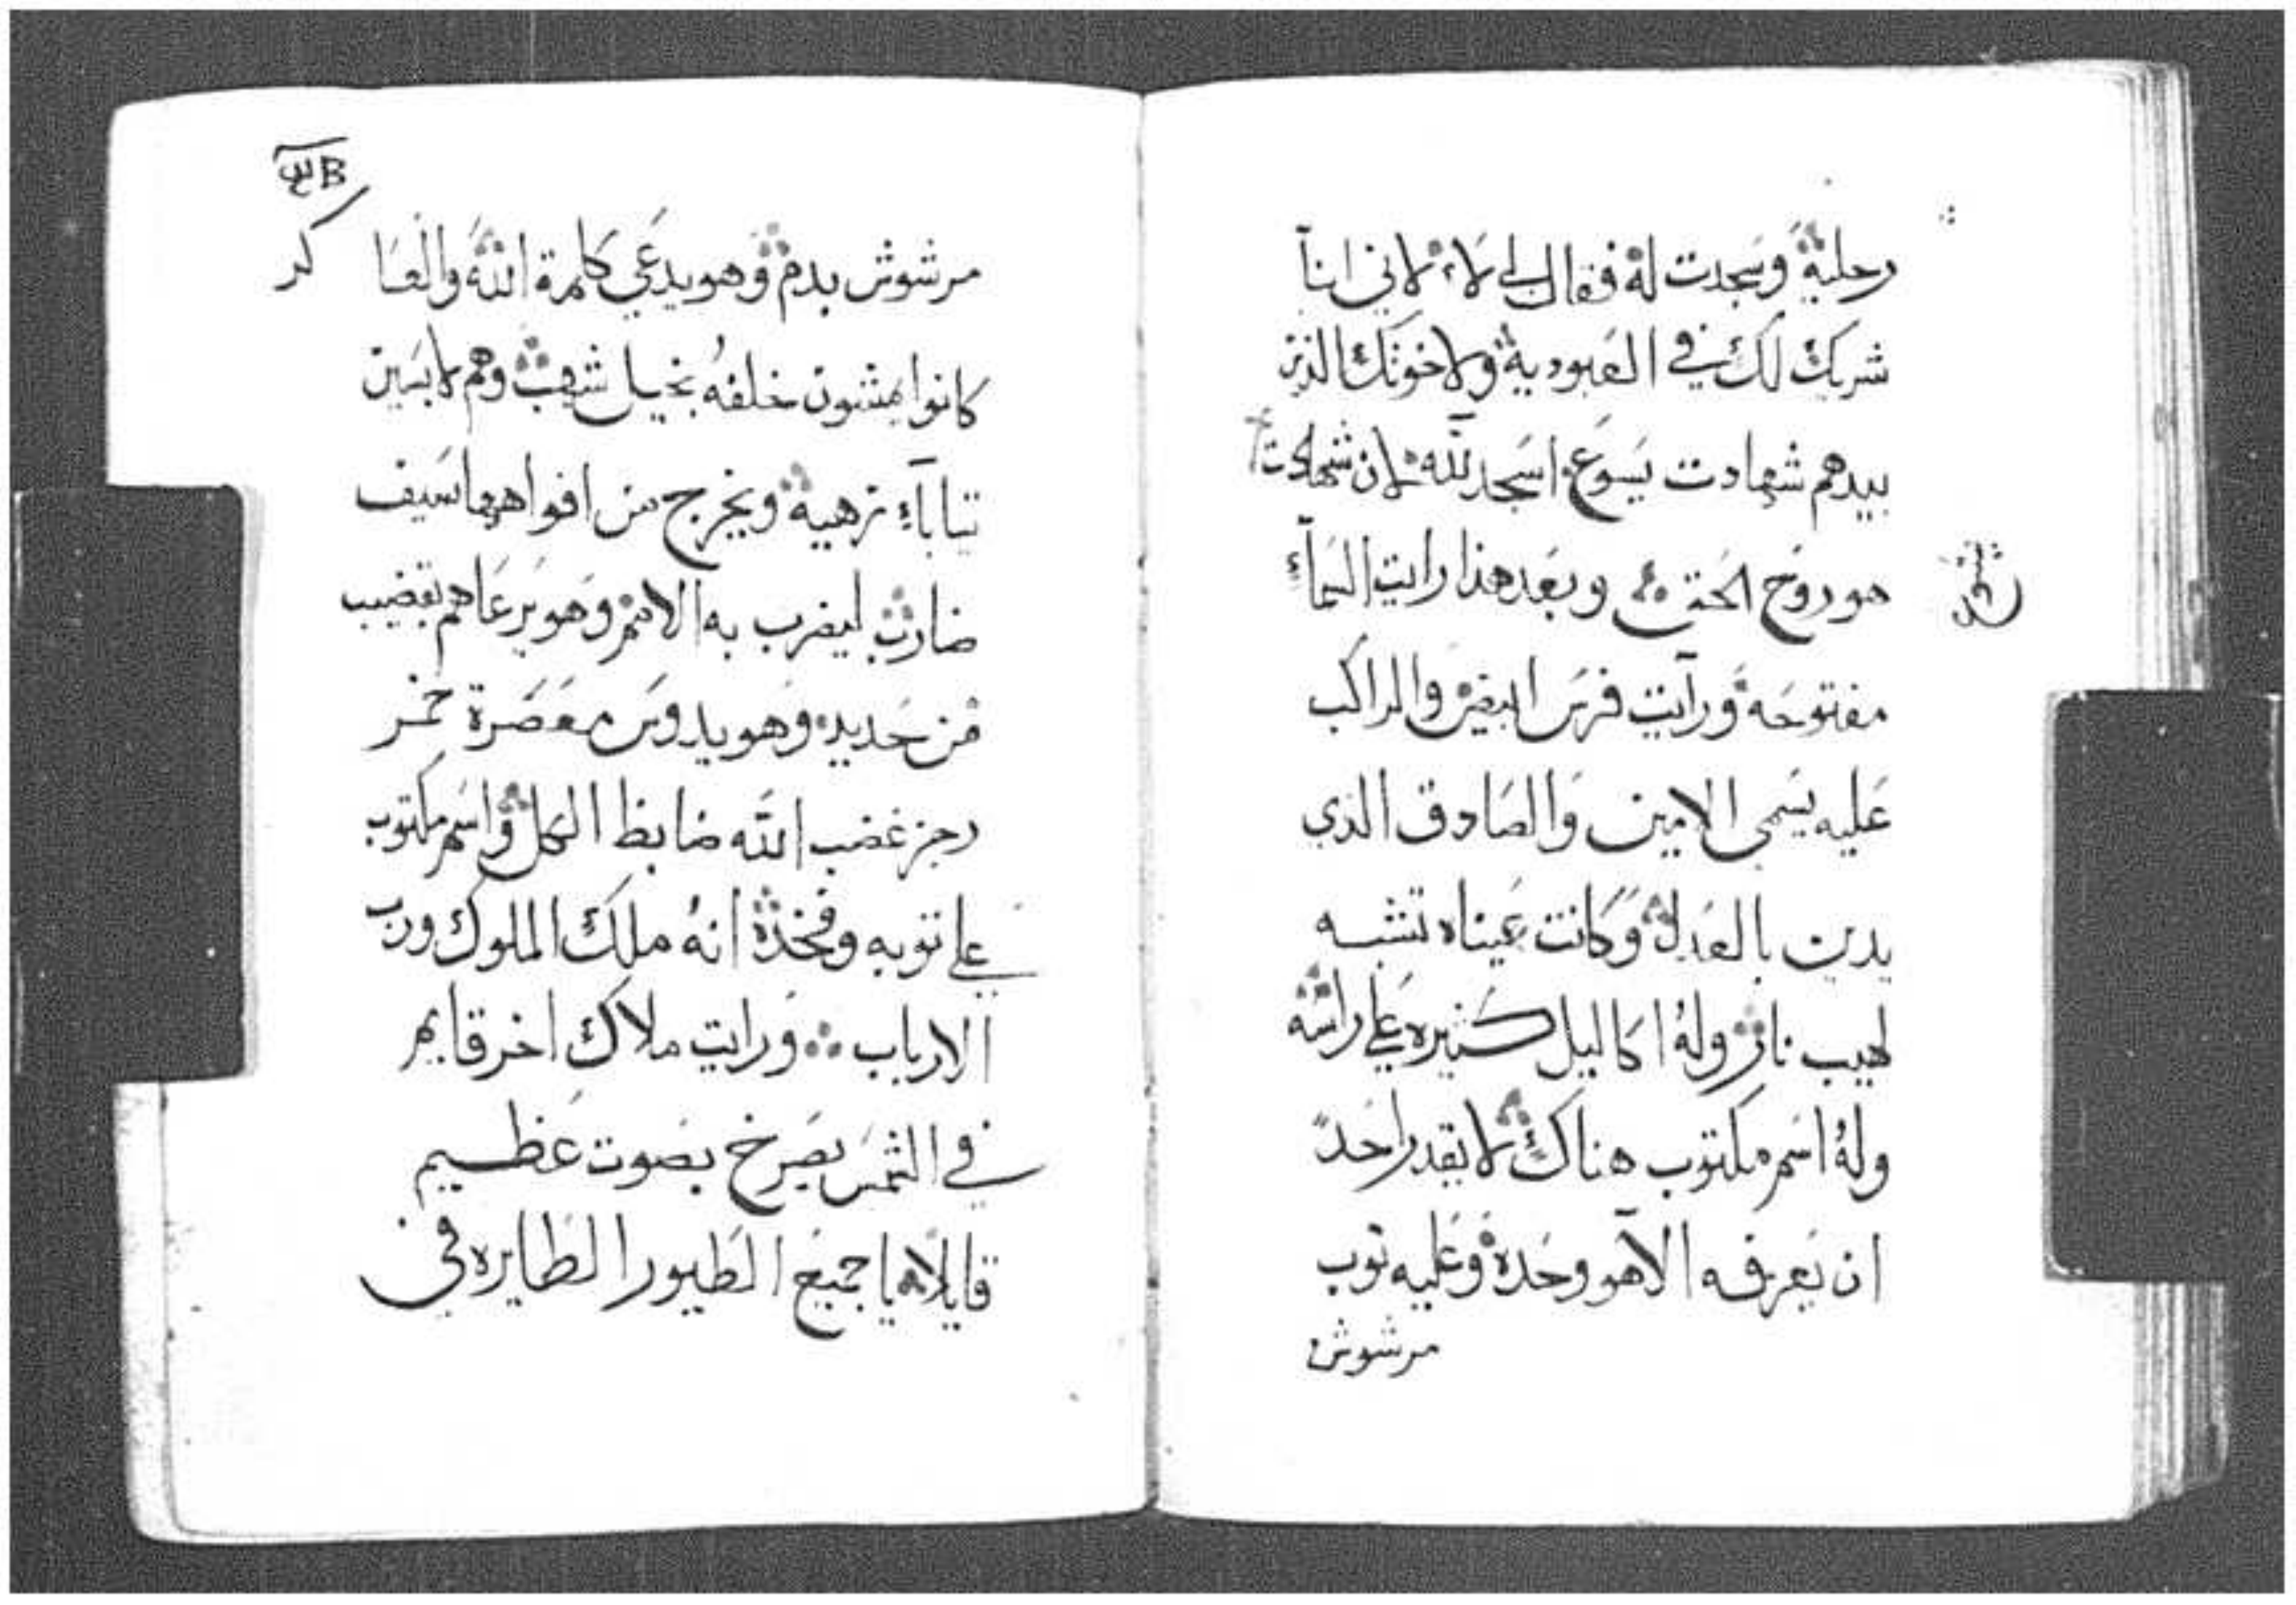 رجليه وسجدت له فقال لي لا لاني انا
شريك لك في العبودية ولاخوتك الذين
بيدهم شهادت يسوع اسجد لله لان شهادت
هو روح الحق وبعد هذا رايت السمآء
مفتوحه ورآيت فرس ابيض والراكب
عليه يسمى الامين والصادق الذي
يدين بالعدل وكانت عيناه تشبه
لهيب نار وله اكاليل كثيره على راسه
وله اسم مكتوب هناك لا يقدر احد
ان يعرفه الآ هو وحده وعليه توب
مرشوش
مرشوش بدم وهو يدعي كلمة الله والعساكر
كانوا يمشون خلفه بخيل شهب وهم لابسين
تيابآء نزهية ويخرج من افواههما سيف
ضارب ليضرب به الامم وهو يرعاهم بقضيب
من حديد وهو يدوس معصرة خمر
رجز غضب الله ضابط الكل واسم مكتوب
على توبه وفخذه انه ملك الملوك ورب
الارباب ورايت ملاك اخر قايم
في الشمس يصرخ بصوت عظيم
قايلا يا جميع الطيور الطايره في